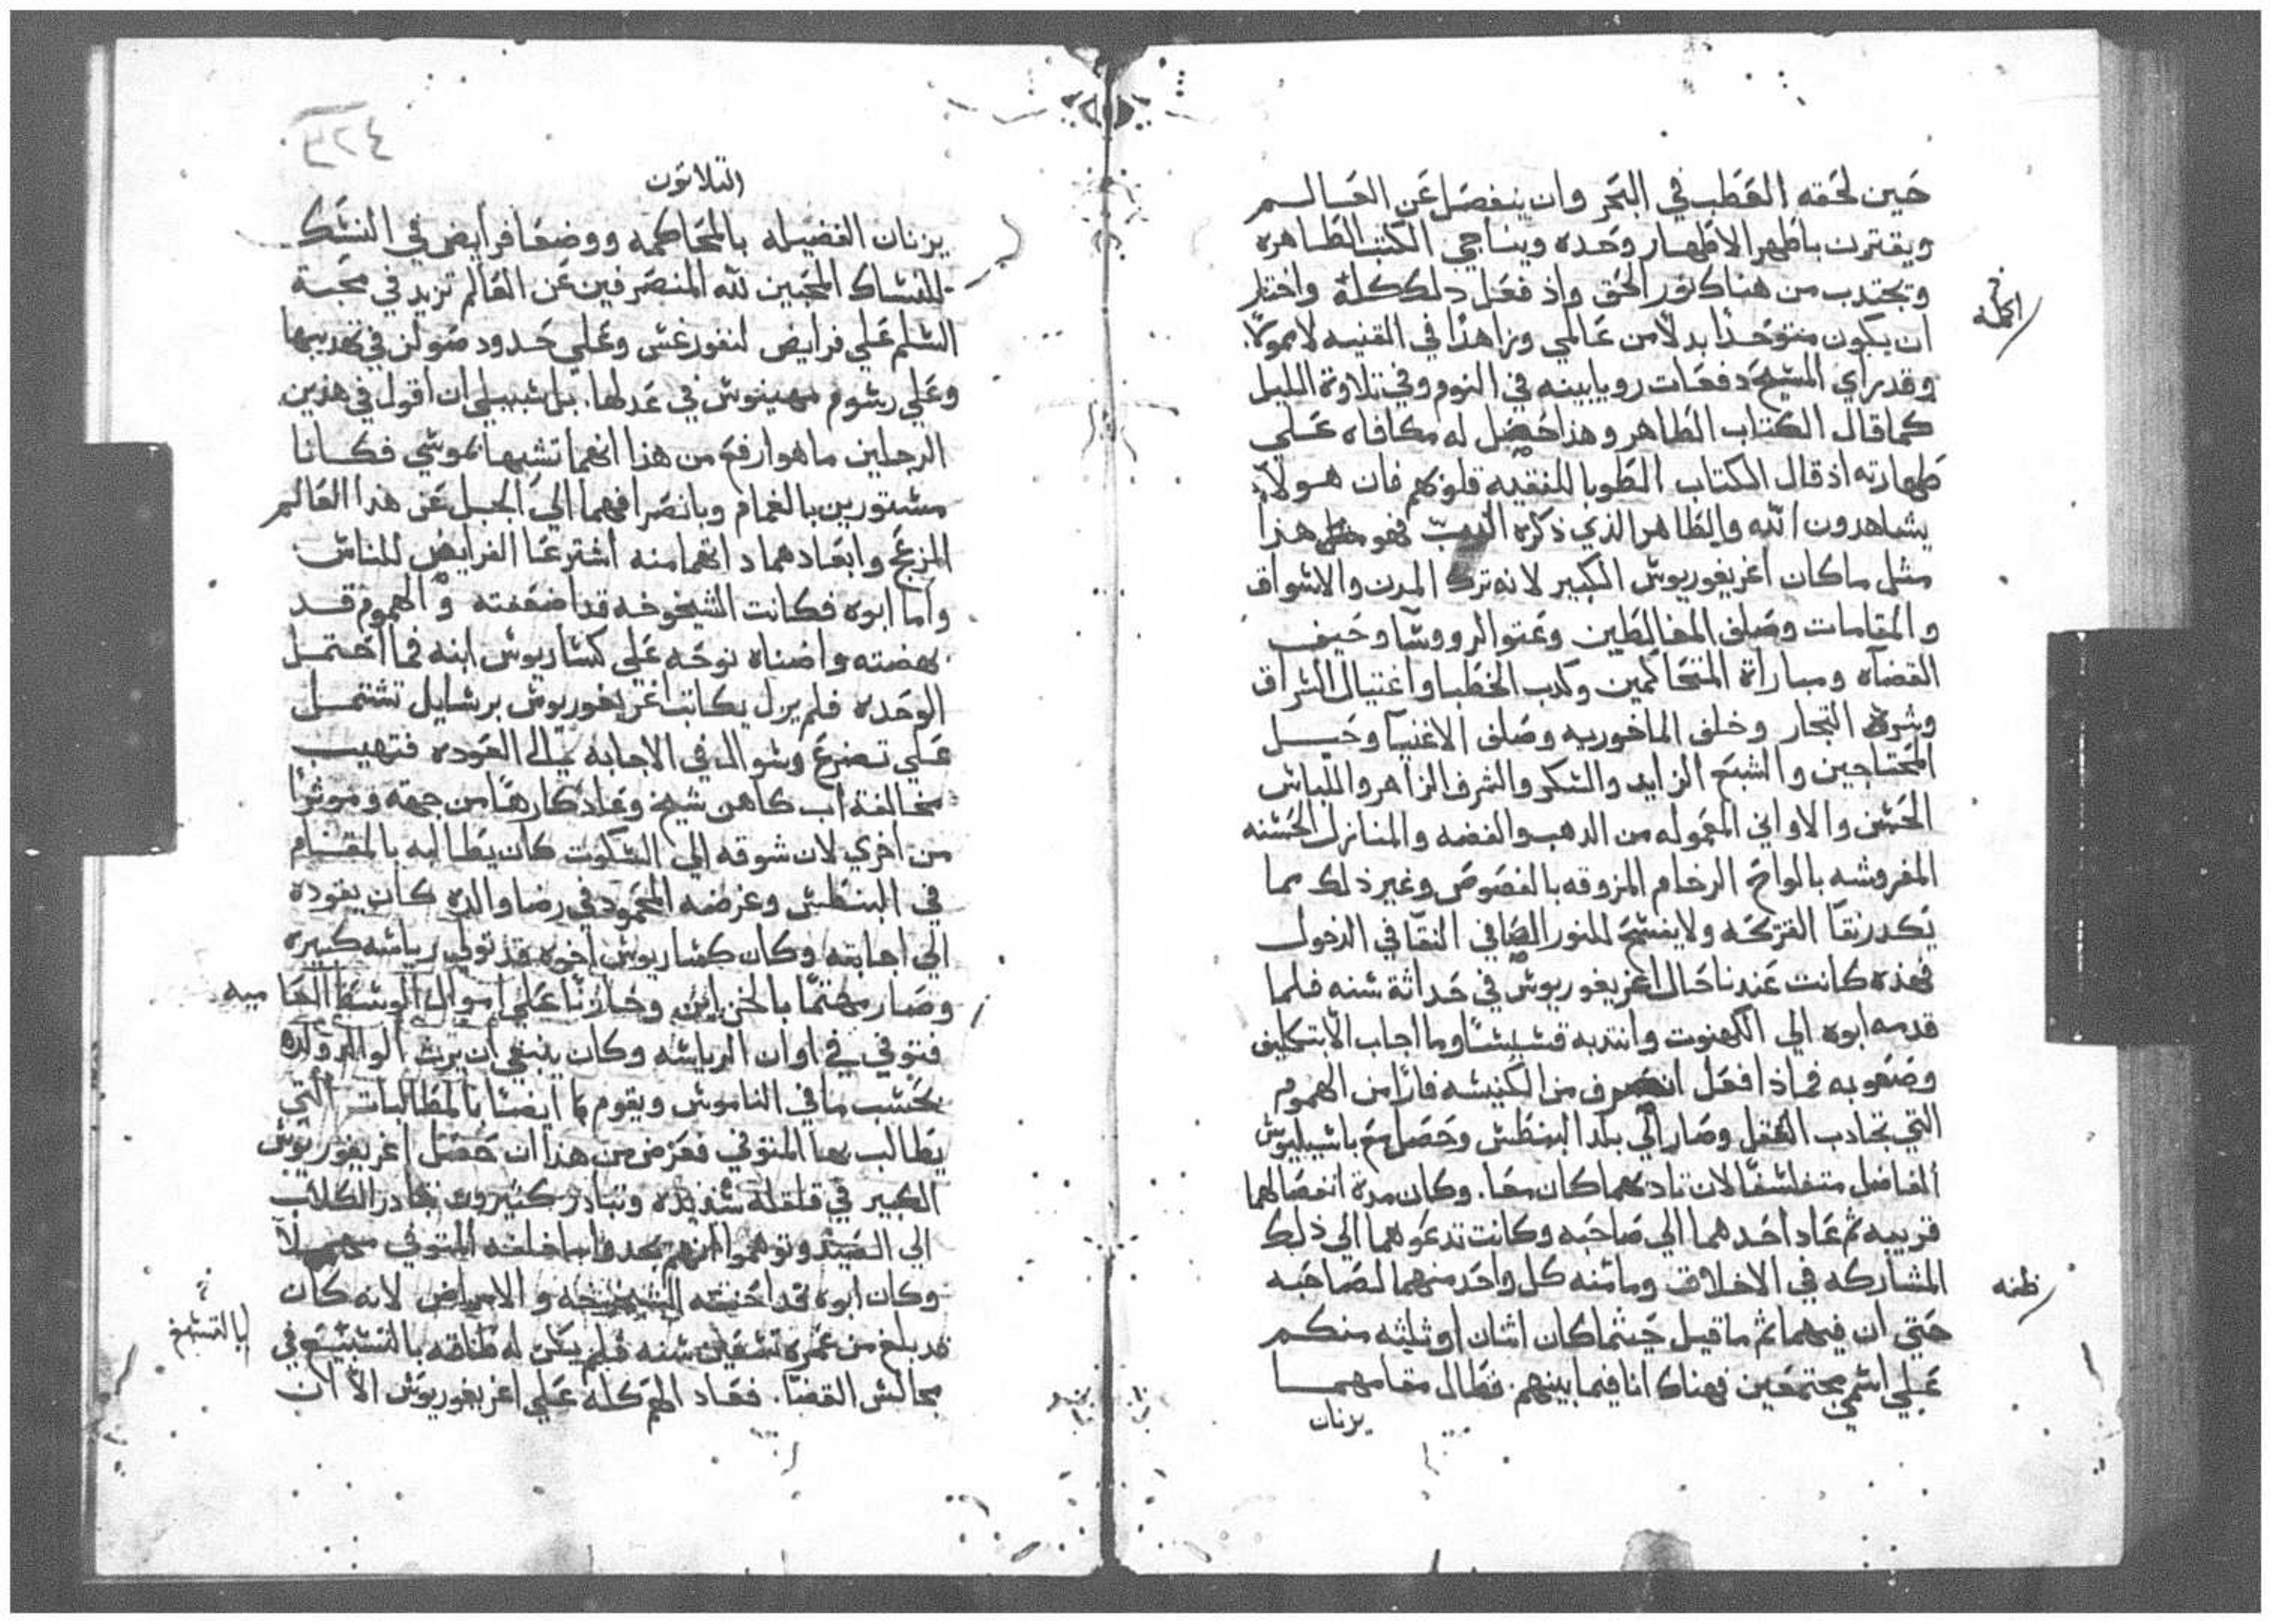 حين لحقه العطب في البحر وان ينفصل عن العالم
ويقترن باطهر الاطهار وحده ويناجي الكتب الطاهره
ويجتدب من هناك نور الحق واذ فعل دلك كله واختار
ان يكون متوحدا بدلا من عالمي وزاهدا في القنيه لا ممولا
وقد راي المسيح دفعات رويا بينه في النوم وفي تلاوة الليل
كما قال الكتاب الطاهر وهذا حصل له مكافاه علي
طهارته اذ قال الكتاب الطوبا للنقيه قلوبهم فان هولاء
يشاهدون الله والطاهر الذي ذكره فهو هذا
مثل ما كان اغريغوريوس الكبير لانه ترك المدن والاسواق
والمقامات وصلف المغالطين وعتو الروسا وحيف
القضاه ومباراة المتحاكمين وكدب الخطبا واغتيال السراق
وشره التجار وخلف الماخوريه وصلف الاغنيا وحيل
المحتاجين والشبع الزايد والسكر والشرف الزاهر واللباس
الحسن والاواني المعموله من الدهب والفضه والمنازل الحسنه
المفروشه بالواح الرخام المزوقه بالفصوص وغير ذلك مما
يكدر نقا القريحه ولا يفسح للنور الصافي النقا في الدخول
فهذه كانت عندنا حال اغريغوريوس في حداثة سنه فلما
قدمه ابوه الي الكهنوت وانتدبه قسيسا وما اجاب الا بتكليف
وصعوبه فماذا فعل انصرف من الكنيسه فارا من الهموم
التي تجادب العقل وصار الي بلد البنطس وحصل مع باسيليوس
الفاضل متفلسفا لان تادبهما كان معا. وكان مدة انفصالهما
قريبه ثم عاد احدهما الي صاحبه وكانت تدعوهما الي ذلك
المشاركه في الاخلاق وما منه كل واحد منهما لصاحبه
ظنه
حتي ان فيهما تم ما قيل حيثما كان اثنان او ثلثه منكم
علي اسمي مجتمعين فهناك انا فيما بينهم. فطال مقامهما
يزنان
٤٢٤
الثلاثون
يزنان الفضيله بالمحاكمه ووضعا فرايض في النسك
للنساك المحبين لله المنصرفين عن العالم تزيد في محبة
السلم علي فرايض لنقورغس وعلي حدود صولن في تهديبها
وعلي رسوم مهينوس في عدلها. بل سبيلي ان اقول في هذين
الرجلين ما هو ارفع من هذا انهما تشبها بموسي فكانا
مستورين بالغمام وبانصرافهما الي الجبل عن هدا العالم
المزعج وابعادهما داتهما منه اشترعا الفرايض للناس
واما ابوه فكانت الشيخوخه قد اضعفته والهموم قد
بهضته واضناه نوحه علي كساريوس ابنه فما احتمل
الوحده فلم يزل يكاتب اغريغوريوس برسايل تشتمل
علي تضرع وسوال في الاجابه الي العوده فتهيب
مخالفة اب كاهن شيخ وعاد كارها من جهة وموثرا
من اخري لان شوقه الي السكوت كان يطالبه بالمقام
في البنطس وغرضه المحمود في رضا والده كان يقوده
الي اجابته وكان كساريوس اخوه قد تولي رياسه كبيره
وصار مهتما بالخزاين وخازنا علي اموال الوسط العاميه
فتوفي في اوان الرياسه وكان ينبغي ان يرث الوالد ولده
بحسب ما في الناموس ويقوم بما ايضا بالمطالبات التي
يطالب بها المتوفي فعرض من هذا ان حصل اغريغوريوس
الكبير في قلقله شديده وتبادر كثيرون تبادر الكلاب
الي الصيد وتوهموا انهم يجدوا ما خلفه المتوفي مهملا
وكان ابوه قد احنته الشيخوخه والامراض لانه كان
قد بلغ من عمره تسعين سنه فلم يكن له طاقه بالتسييع في
مجالس القضا. فعاد الهم كله علي اغريغوريوس الا ان